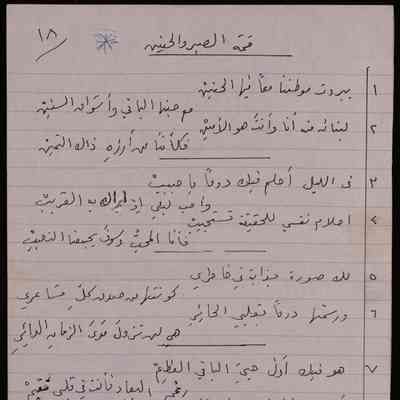 ١٨
قمة الصبر والحنين
١ بيروت موطننا معاً فيها الحنين
مع حبنا الباقي وأشواق السنين
٢ لبنان فيه أنا وأنت هو الأمين
فكلانا من أرزه ذاك الثمين
٣ في الليل أحلم فيك دوماً يا حبيب
وأحب ليلي إذ أراك به القريب
٤ أحلام نفسي للحقيقة تستجيب
فأنا المحب وكون يجمعنا النصيب
٥ لك صورة جذابة في خاطري
كونتها من صدق كل مشاعري
٦ ورسمتها دوماً بقلبي الحائر
هي لن تزول مدى الزمان
٧ هو فيك أول حبي الباقي العظيم
رغم البعاد فأنت في قلبي مقيم